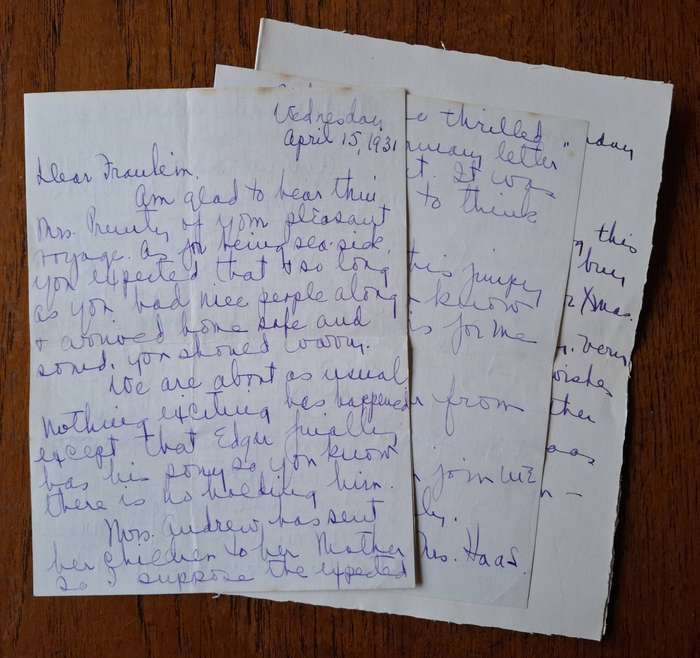 Wednesday
April 15, 1931
Dear Fraulein.
Am glad to hear thru
Mrs. of your pleasant
voyage. as for being sea-sick,
you expected that & so long
as you had nice people along
& arrived home safe and
sound, you should worry.
We are about as usual,
nothing exciting has happened
except that Edgar finally
has his pony, so you know
there is no holding him.
Mrs. Andrew has sent
her children to her Mother
so I suppose the expected
so thrilled
letter
It was
to think
his jumpy
know
is for me
from
join me
Mrs. Haas.
this
buy
Xmas.
very
wishes